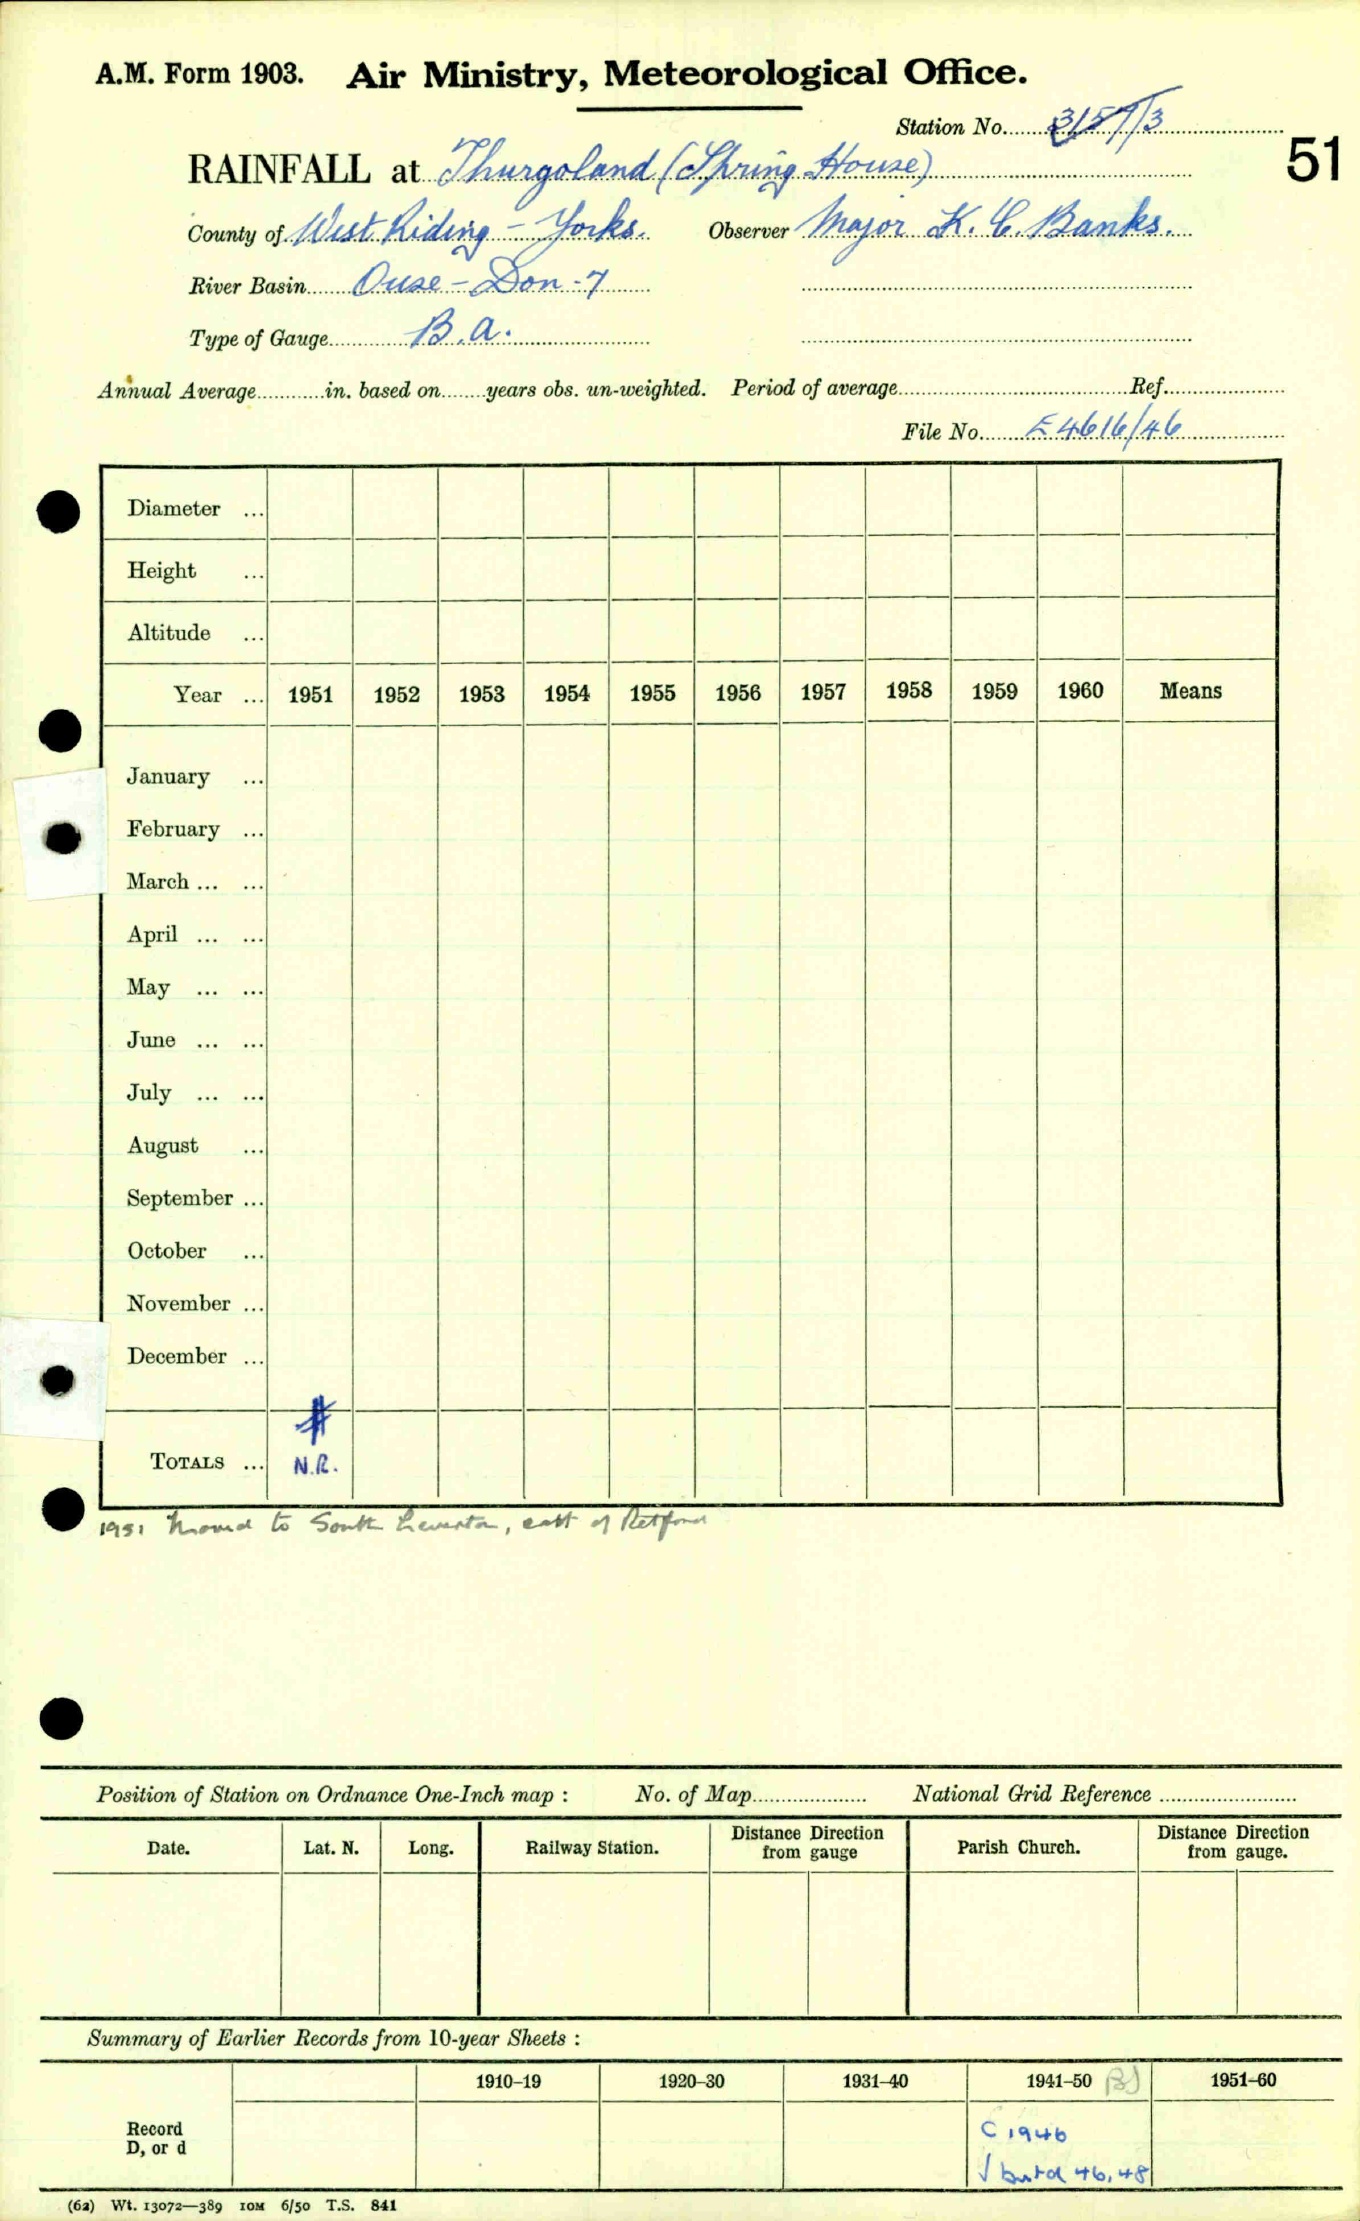 A.M. Form 1903. Air Ministry, Meteorological Office.
Station No. 3157/3
51
RAINFALL at Thurgoland (Spring House)
County of West Riding - Yorks. Observer Major K. C. Banks.
River Basin Ouse - Don - 7
Type of Gauge B.a.
Annual Average in. based on years obs. un-weighted. Period of average Ref.
File No. E4616/46
Diameter ...
Height ...
Altitude ...
Year ... 1951 1952 1953 1954 1955 1956 1957 1958 1959 1960 Means
January ...
February ...
March ... ...
April ... ...
May ... ...
June ... ...
July ... ...
August ...
September ...
October ...
November ...
December ...
TOTALS ... N.R.
1951 Moved to South Leverton, east of Retford
Position of Station on Ordnance One-Inch map : No. of Map National Grid Reference
Date. Lat. N. Long. Railway Station. Distance Direction from gauge Parish Church. Distance Direction from gauge.
Summary of Earlier Records from 10-year Sheets :
1910-19 1920-30 1931-40 1941-50 1951-60
Record
D, or d
C 1946
√ but d 46, 48
(62) Wt. 13072—389 10M 6/50 T.S. 841